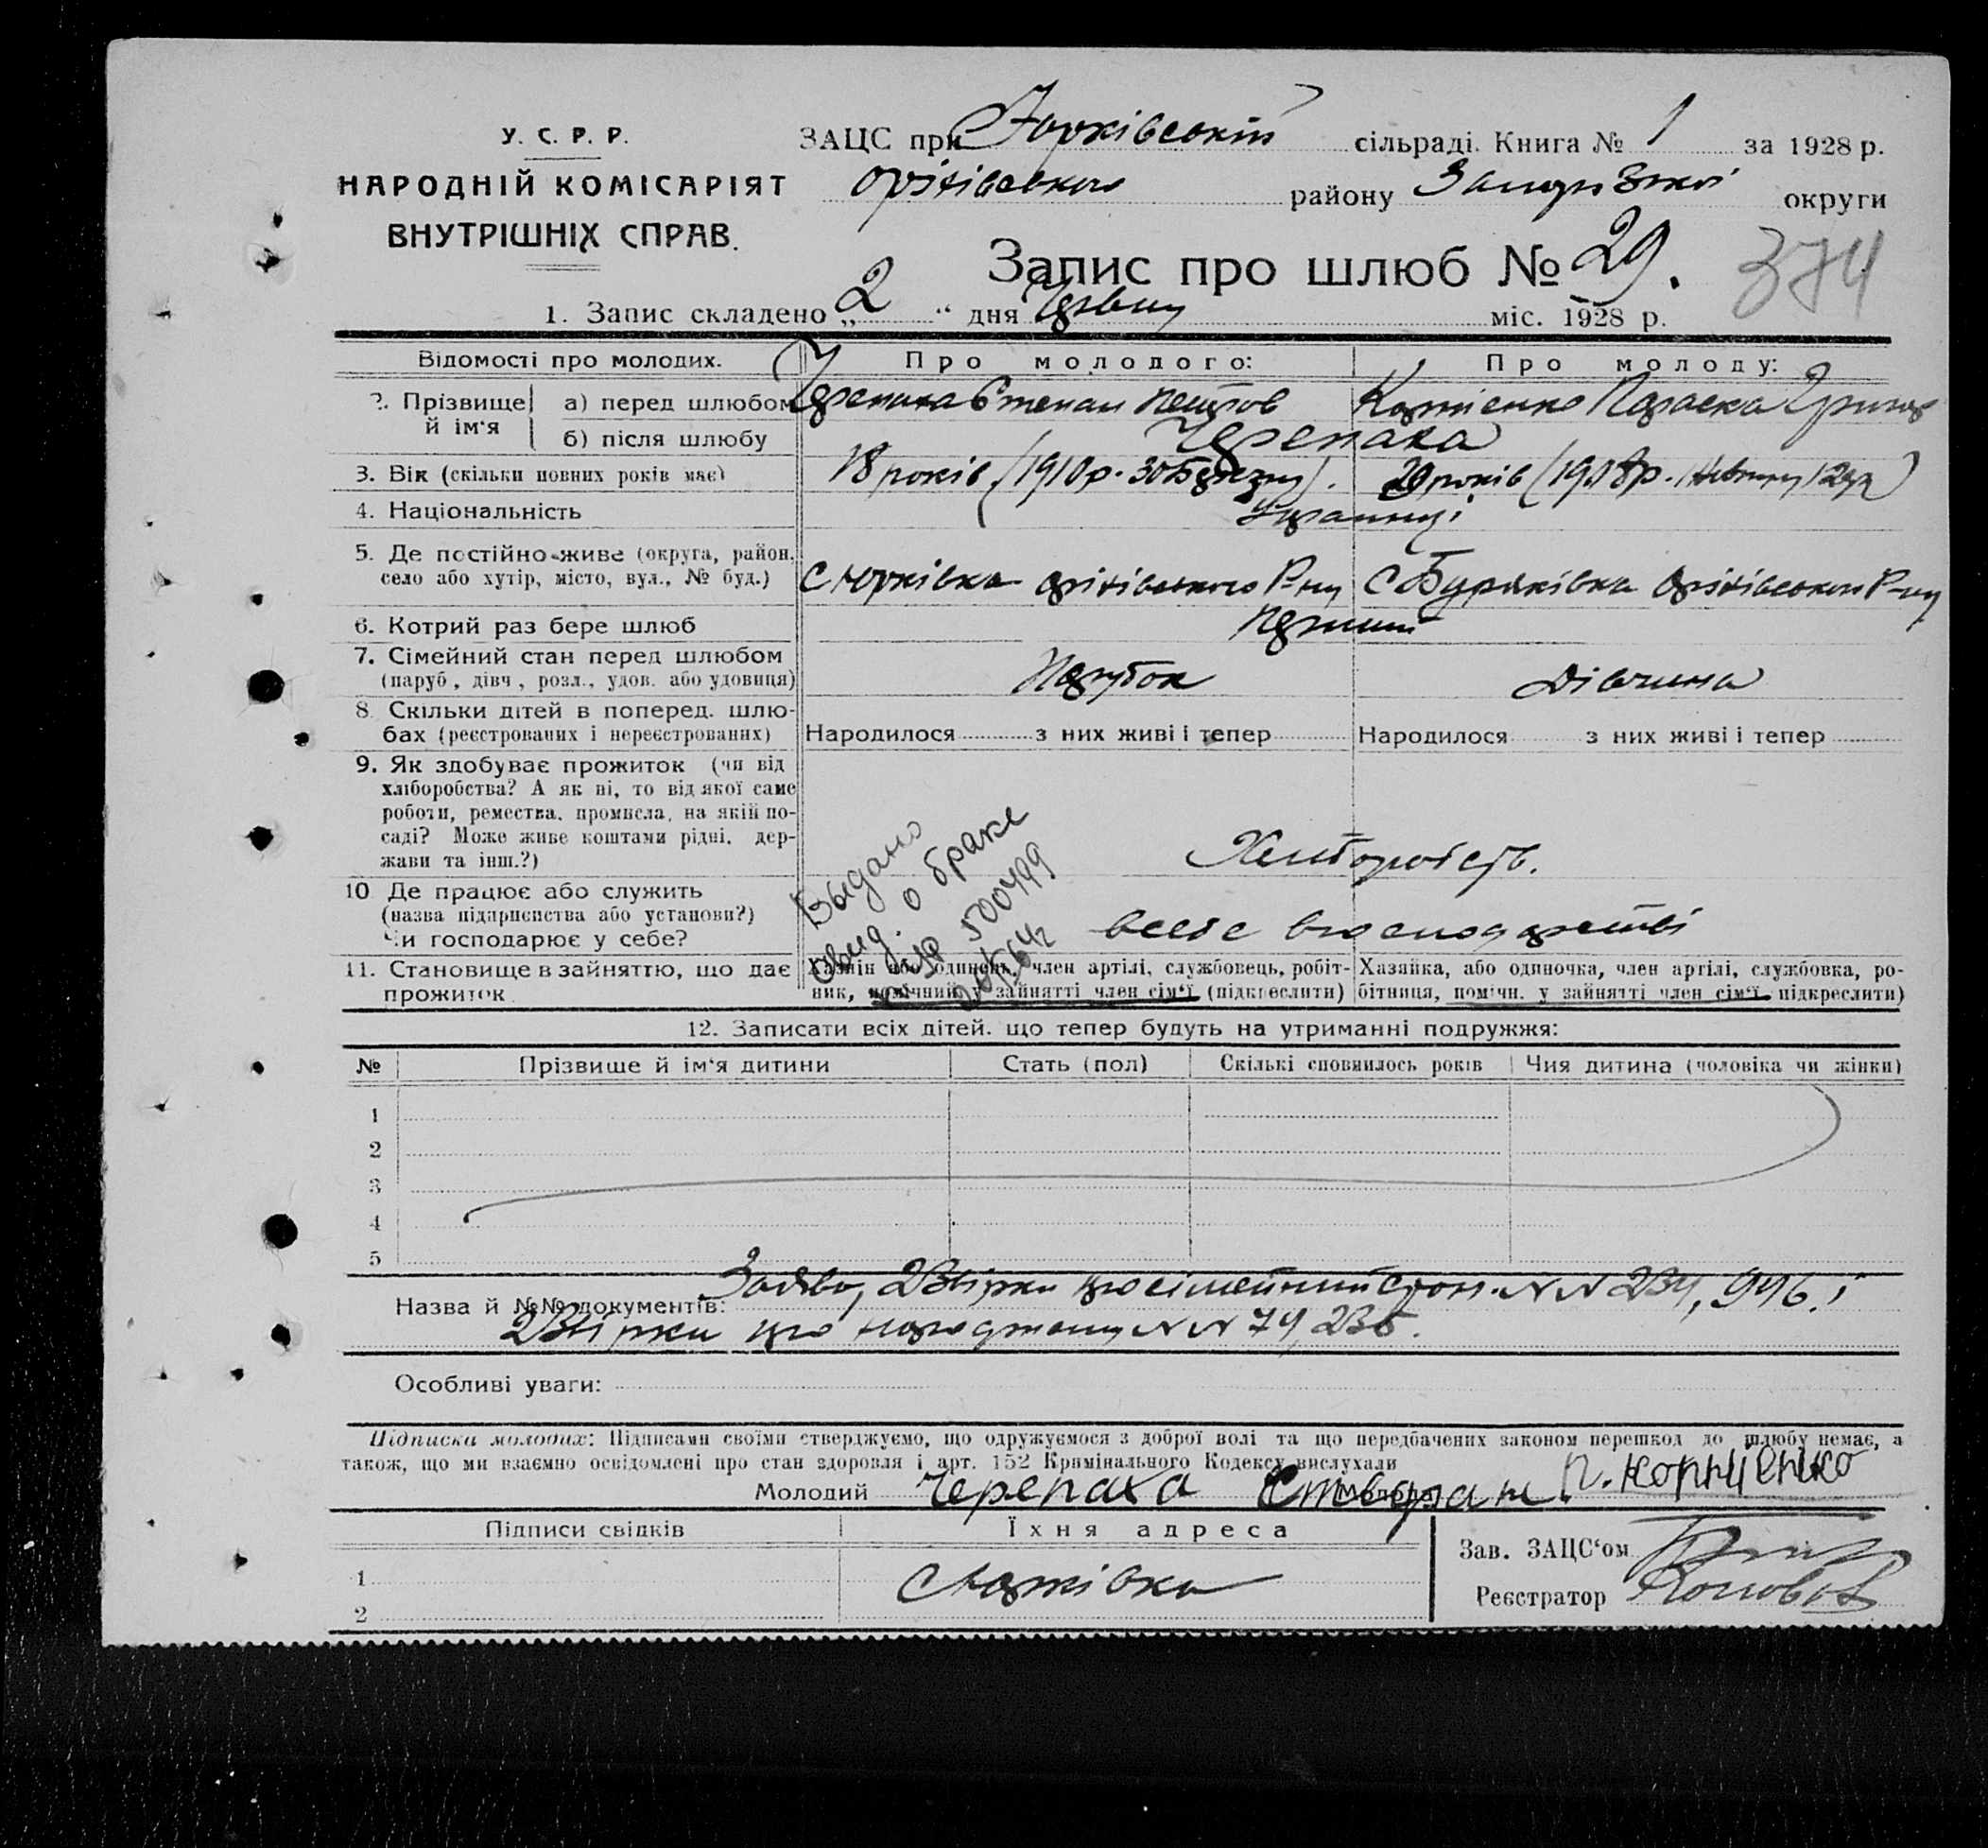 У. С. Р. Р.
НАРОДНІЙ КОМІСАРІЯТ
ВНУТРІШНІХ СПРАВ.
ЗАЦС при Юрківській сільраді. Книга № 1 за 1928 р.
Оріхівського району Запорізької округи
Запис про шлюб № 29.
374
1. Запис складено „ 2 “ дня Червня міс. 1928 р.
Відомості про молодих. Про молодого: Про молоду:
2. Прізвище й ім‘я а) перед шлюбом Черепаха Степан Петров Корнієнко Параска Григор
б) після шлюбу Черепаха
3. Вік (скільки повних років має) 18 років (1910 р. 30 Березня). 20 років (1908 р.
4. Національність Українці
5. Де постійно живе (округа, район, село або хутір, місто, вул., № буд.) С Юрківка Оріхівського Р-ну С Буряківка Оріхівського Р-ну
6. Котрий раз бере шлюб Перший
7. Сімейний стан перед шлюбом (паруб., дівч., розл., удов. або удовиця) Парубок Дівчина
8. Скільки дітей в поперед. шлюбах (реєстрованих і нереєстрованих) Народилося з них живі і тепер Народилося з них живі і тепер
9. Як здобуває прожиток (чи від
хліборобства? А як ні, то від якої саме
роботи, ремества, промисла, на якій по-
саді? Може живе коштами рідні, дер-
жави та інш.?)
Хліборобств.
10 Де працює або служить
(назва підприємства або установи?)
Чи господарює у себе?
в своє господарстві
Выдано
свид. о браке
№ 500499
11. Становище в зайняттю, що дає прожиток
Хазяїн або одинець, член артілі, службовець, робіт-
ник, помічний у зайнятті член сім‘ї (підкреслити)
Хазяйка, або одиночка, член артілі, службовка, ро-
бітниця, помічн. у зайнятті член сім‘ї підкреслити)
12. Записати всіх дітей. що тепер будуть на утриманні подружжя:
№ Прізвище й ім‘я дитини Стать (пол) Скількі сповнилось років Чия дитина (чоловіка чи жінки)
1
2
3
4
5
Назва й №№ документів: Заява, 2 Звірки про сімейний стан. N N 234, 946, і
2 Звірки про народження N N 74, 235.
Особливі уваги:
Підписки молодих: Підписами своїми стверджуємо, що одружуємося з доброї волі та що передбачених законом перешкод до шлюбу немає, а
також, що ми взаємно освідомлені про стан здоровля і арт. 152 Кримінального Кодексу вислухали
Молодий Черепаха Степан. П. Корниенко
Підписи свідків Їхня адреса
1 С Юрківка
2
Зав. ЗАЦС‘ом
Реєстратор